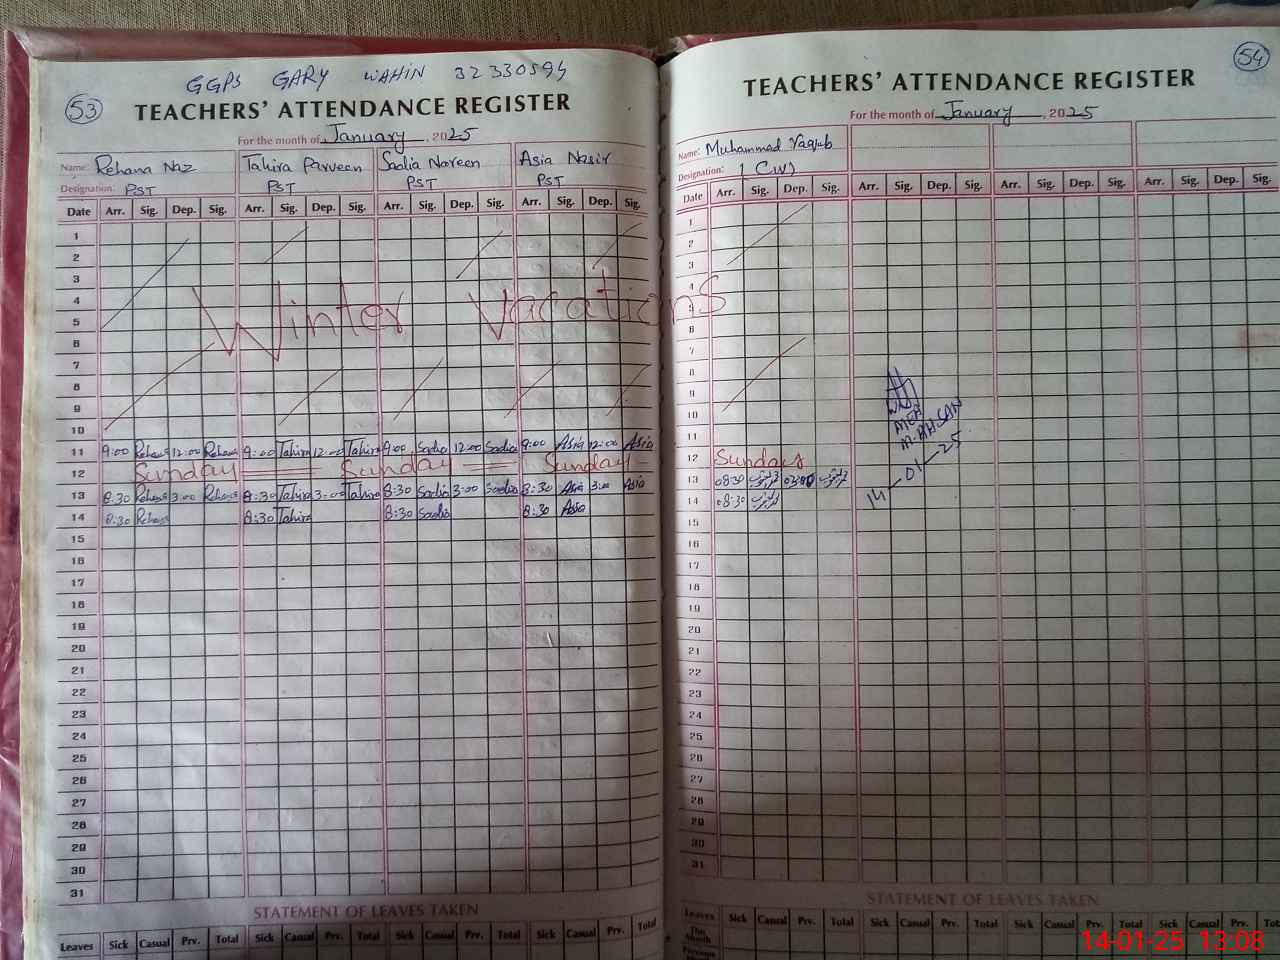 GGPS GARY WAHIN 32330594
53
TEACHERS' ATTENDANCE REGISTER
For the month of January, 2025
Name: Rehana Naz Tahira Parveen Sadia Noreen Asia Nasir
Designation: PST PST PST PST
Date Arr. Sig. Dep. Sig. Arr. Sig. Dep. Sig. Arr. Sig. Dep. Sig. Arr. Sig. Dep. Sig.
1
2
3
4
5
Winter Vacations
6
7
8
9
10
11 9:00 Rehana 12:00 Rehana 9:00 Tahira 12:00 Tahira 9:00 Sadia 12:00 Sadia 9:00 Asia 12:00 Asia
12 Sunday Sunday Sunday
13 8:30 Rehana 3:00 Rehana 8:30 Tahira 3:00 Tahira 8:30 Sadia 3:00 Sadia 8:30 Asia 3:00 Asia
14 8:30 Rehana 8:30 Tahira 8:30 Sadia 8:30 Asia
15
16
17
18
19
20
21
22
23
24
25
26
27
28
29
30
31
STATEMENT OF LEAVES TAKEN
Leaves Sick Casual Prv. Total Sick Casual Prv. Total Sick Casual Prv. Total Sick Casual Prv. Total
54
TEACHERS' ATTENDANCE REGISTER
For the month of January, 2025
Name: Muhammad Yaqub
Designation: (C(W)
Date Arr. Sig. Dep. Sig. Arr. Sig. Dep. Sig. Arr. Sig. Dep. Sig. Arr. Sig. Dep. Sig.
1
2
3
4
5
6
7
8
9
10
11
12 Sundays
13 08:30 03:00
14 08:30
MEA
M. AHSAN
14-01-25
15
16
17
18
19
20
21
22
23
24
25
26
27
28
29
30
31
STATEMENT OF LEAVES TAKEN
Leaves Sick Casual Prv. Total Sick Casual Prv. Total Sick Casual Prv. Total Sick Casual Prv. Total
This Month
14-01-25 13:08